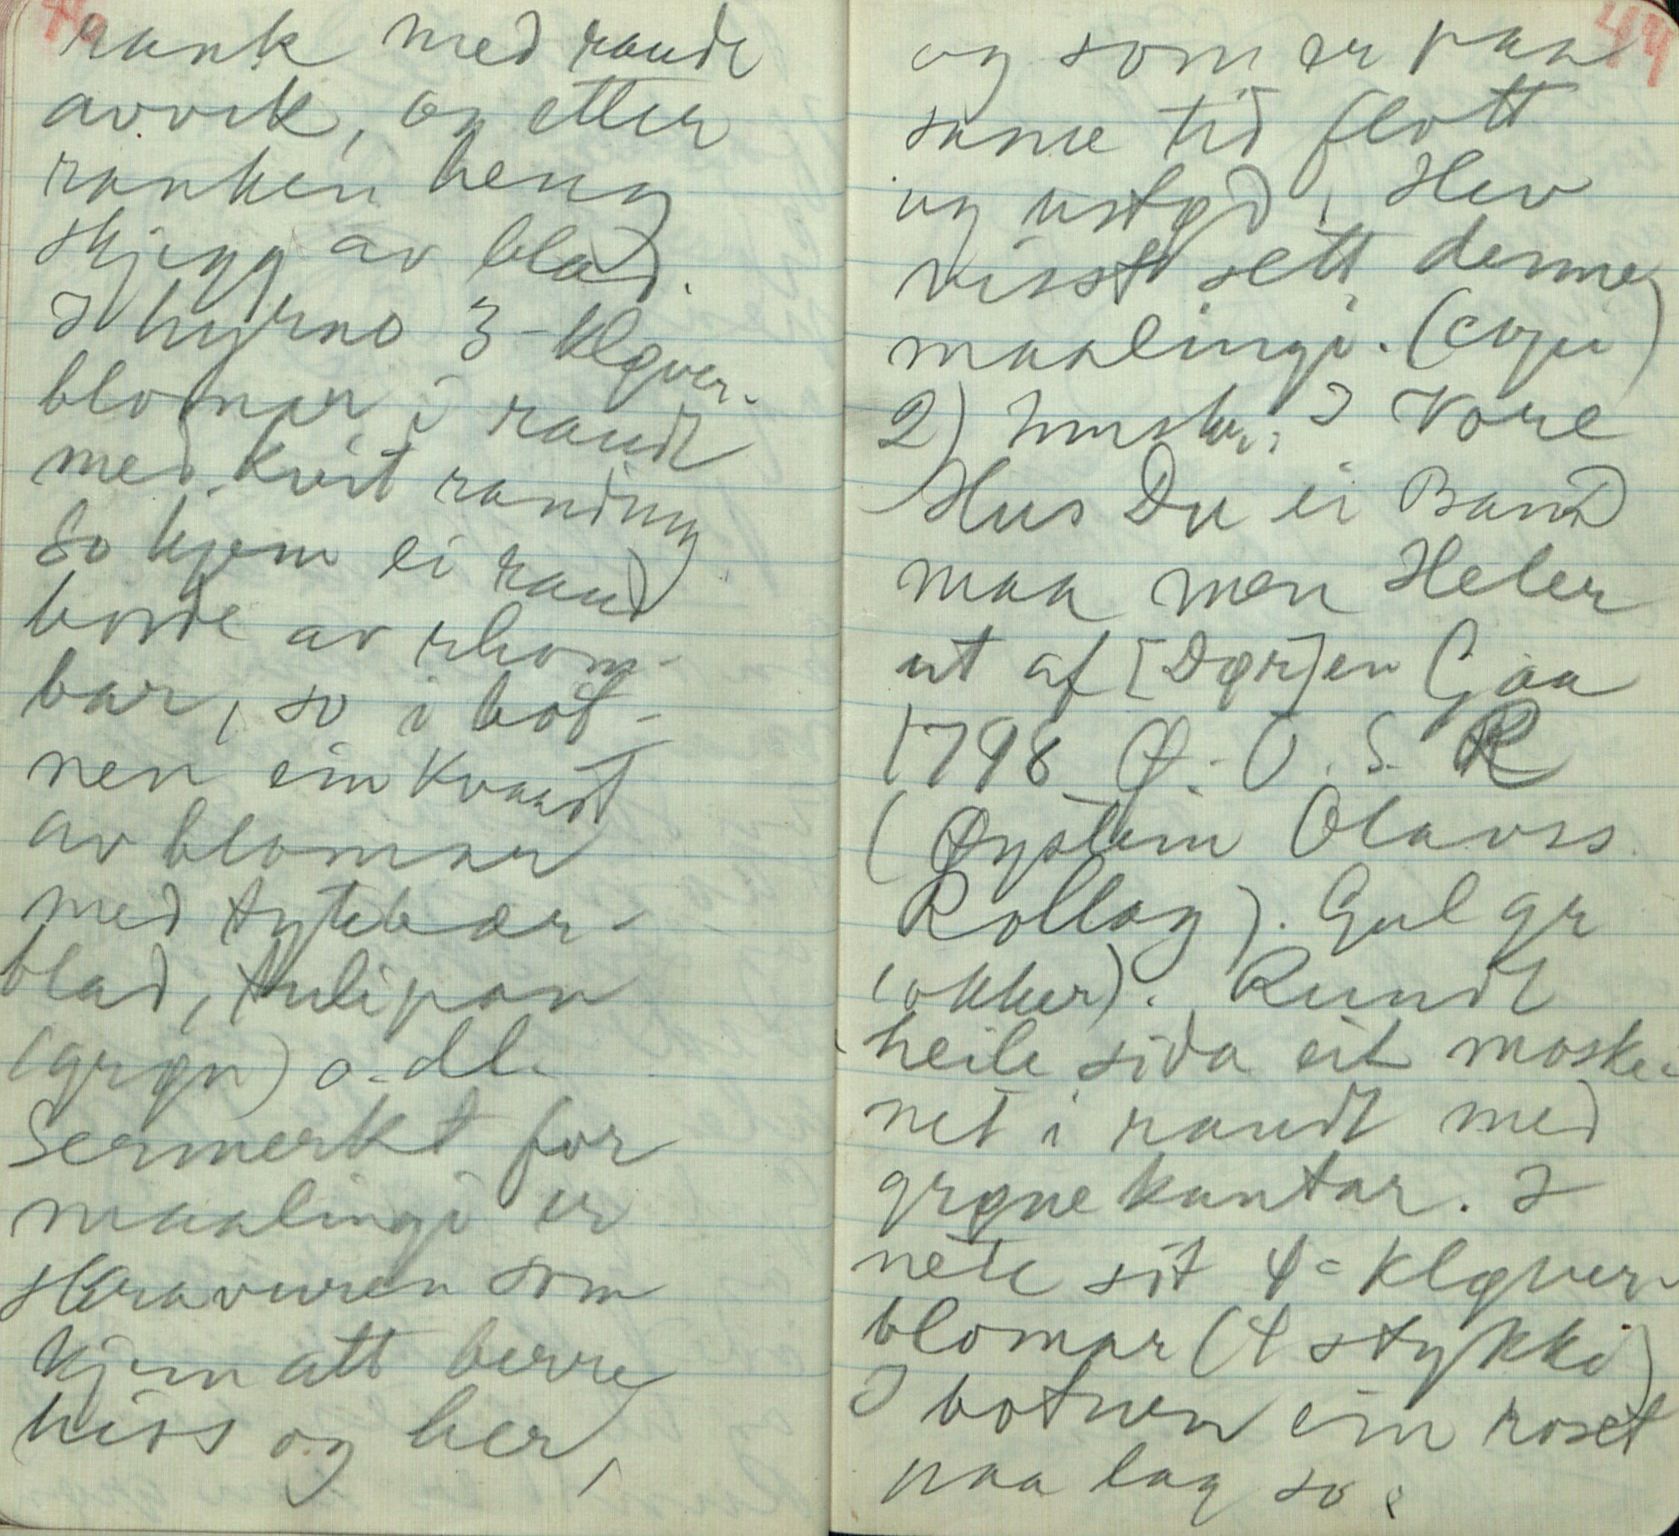 rank med raude
avvik, og etter
ranken heng
skjegg av blad.
I hyrno 3-kløver-
blomar i raudt
med kvit randing
So kjem ei raud
borde av rhom-
bar, so i bot-
nen ein kvaast
av blomar
med tytebær-
blad, tulipan
(grøn) o. dl.
Sermerkt for
maalingi er
skravuren som
kjem att berre
hiss og her,
49
og som er paa
same tid flott
og ustød, Hev
visst sett denne
maalingi. (copi)
2) Innskr.: I Vore
Hus Du ei Band
maa men Heler
ut af [Dør]en Gaa
1798 Ø. O. S. R
(Øystein Olavss.
Rollag). Gul gr
(okker). Rundt
heile sida eit moske-
net i raudt med
grøne kantar. I
nete sit 4-kløver-
blomar (4 stykki)
I botnen ein roset
paa lag so: